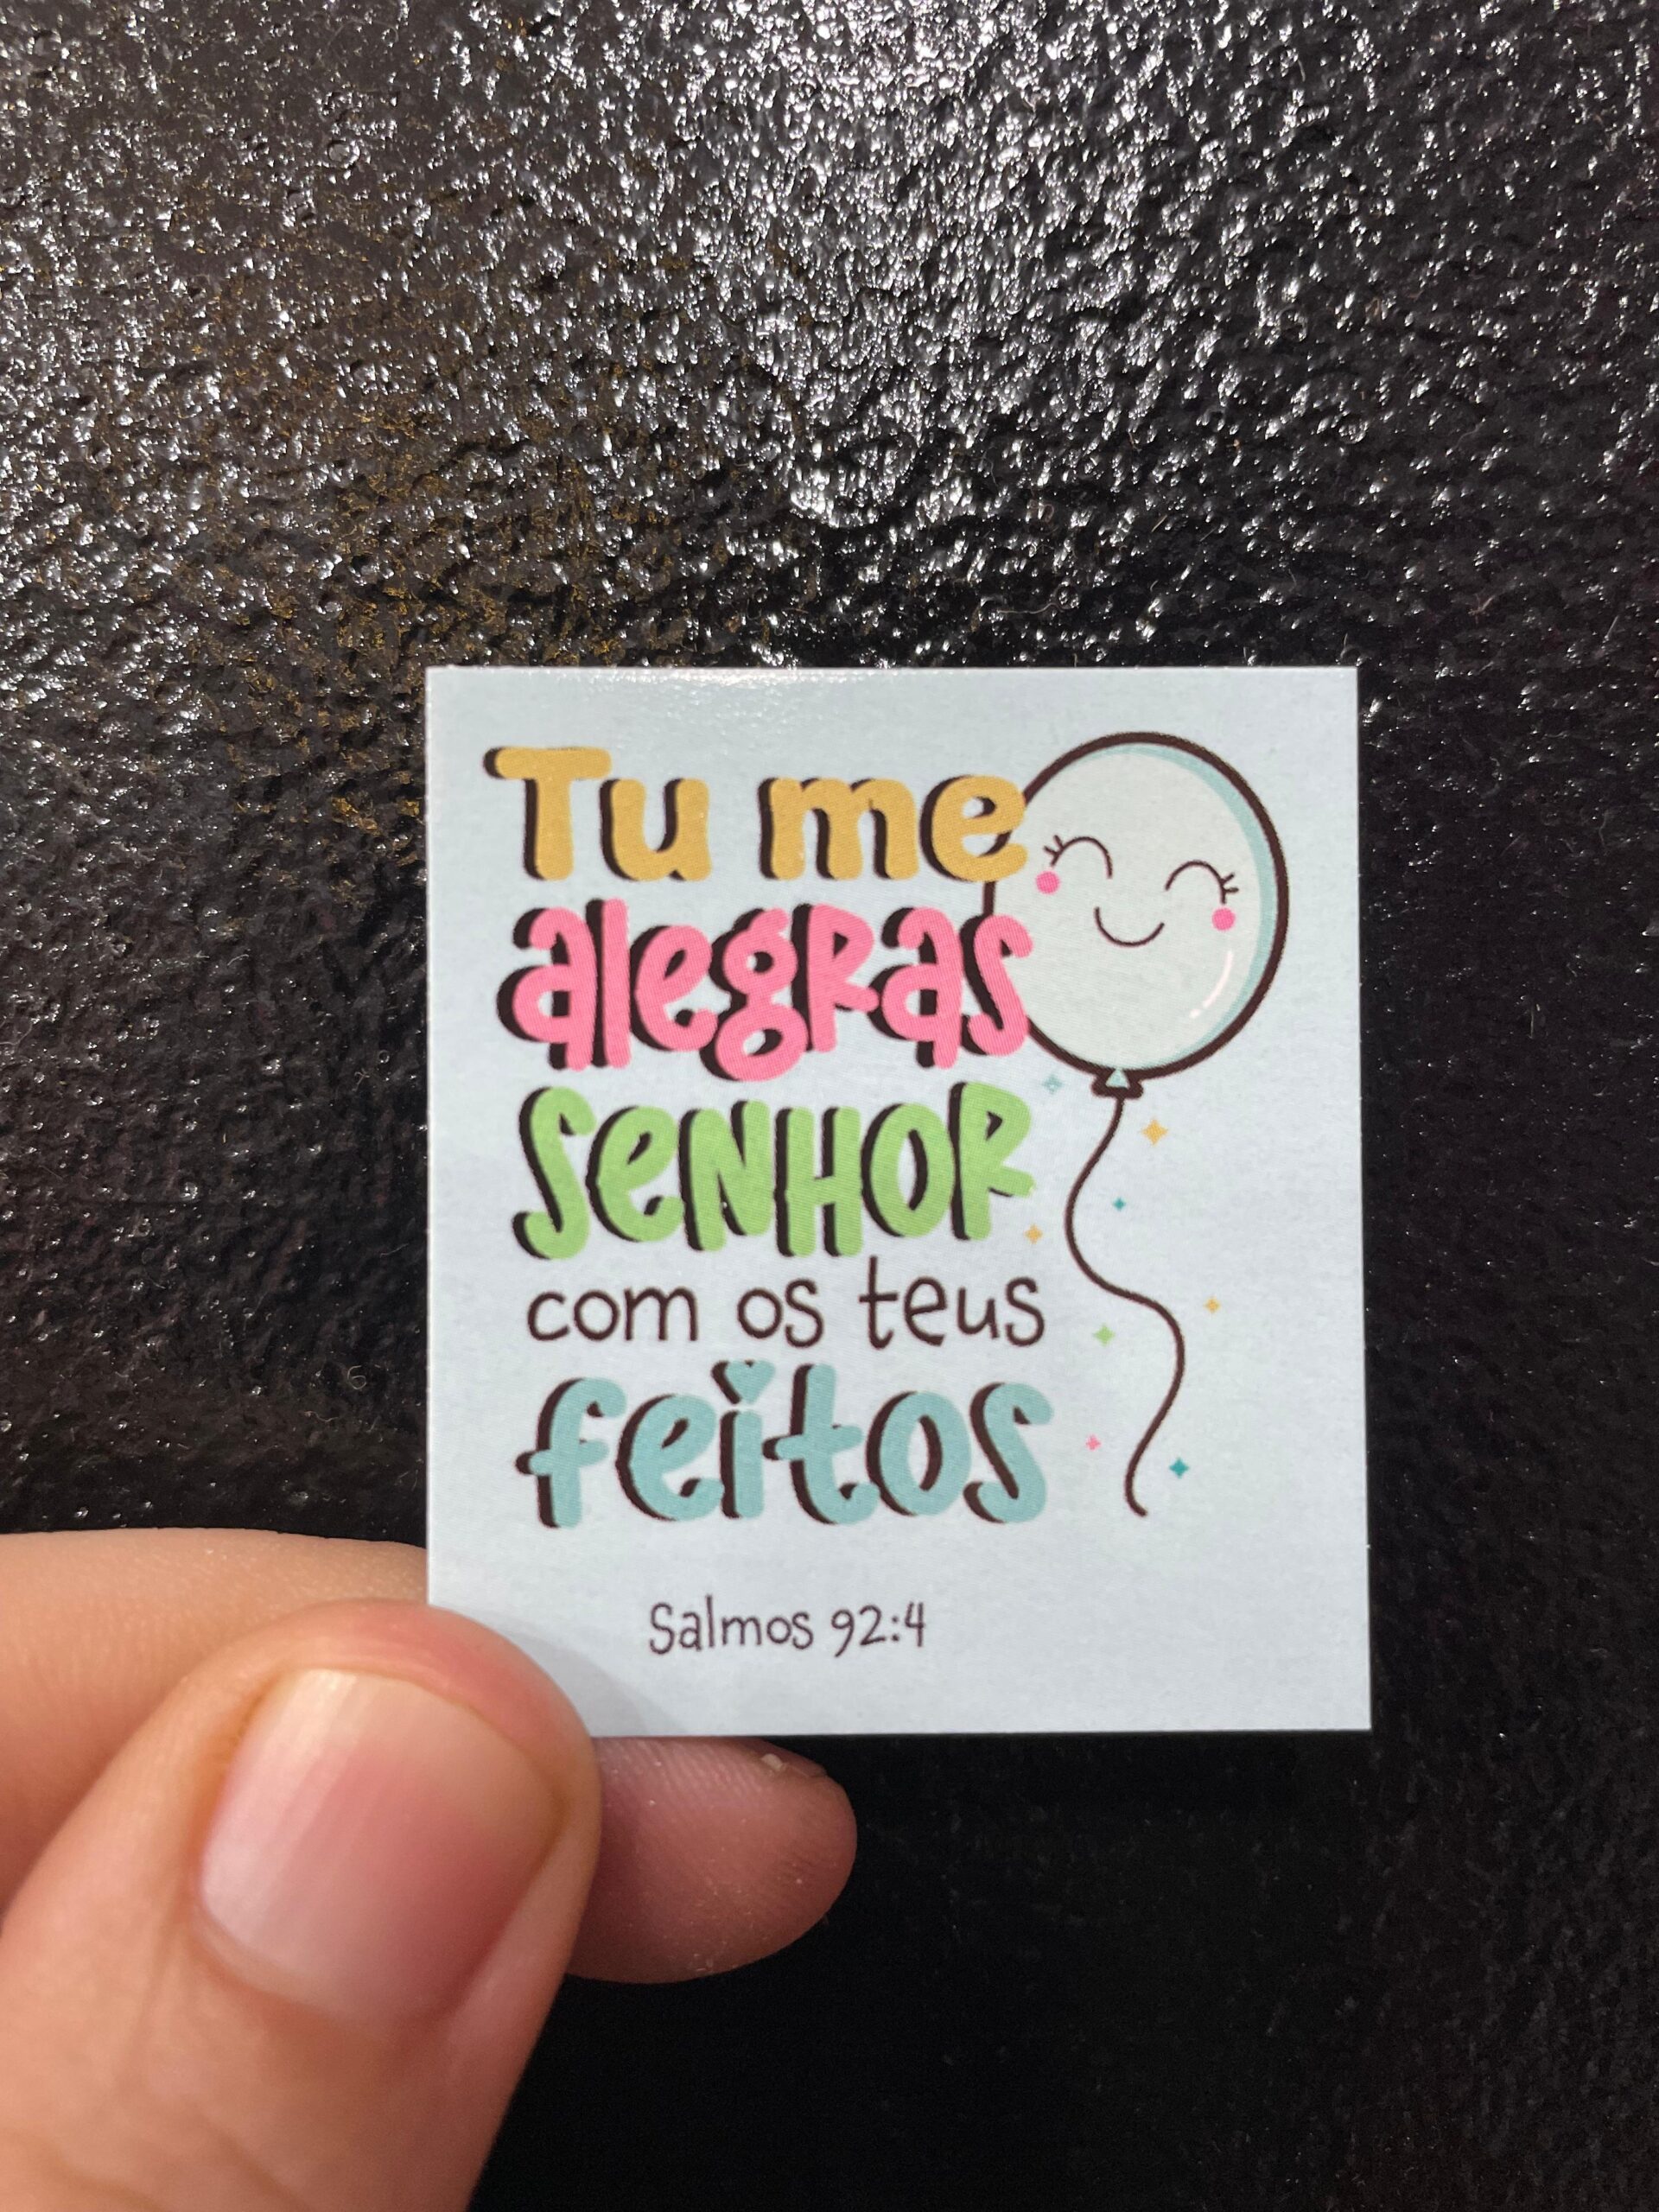 Tu me
alegras
SeNHOR
com os teus
feitos
Salmos 92:4